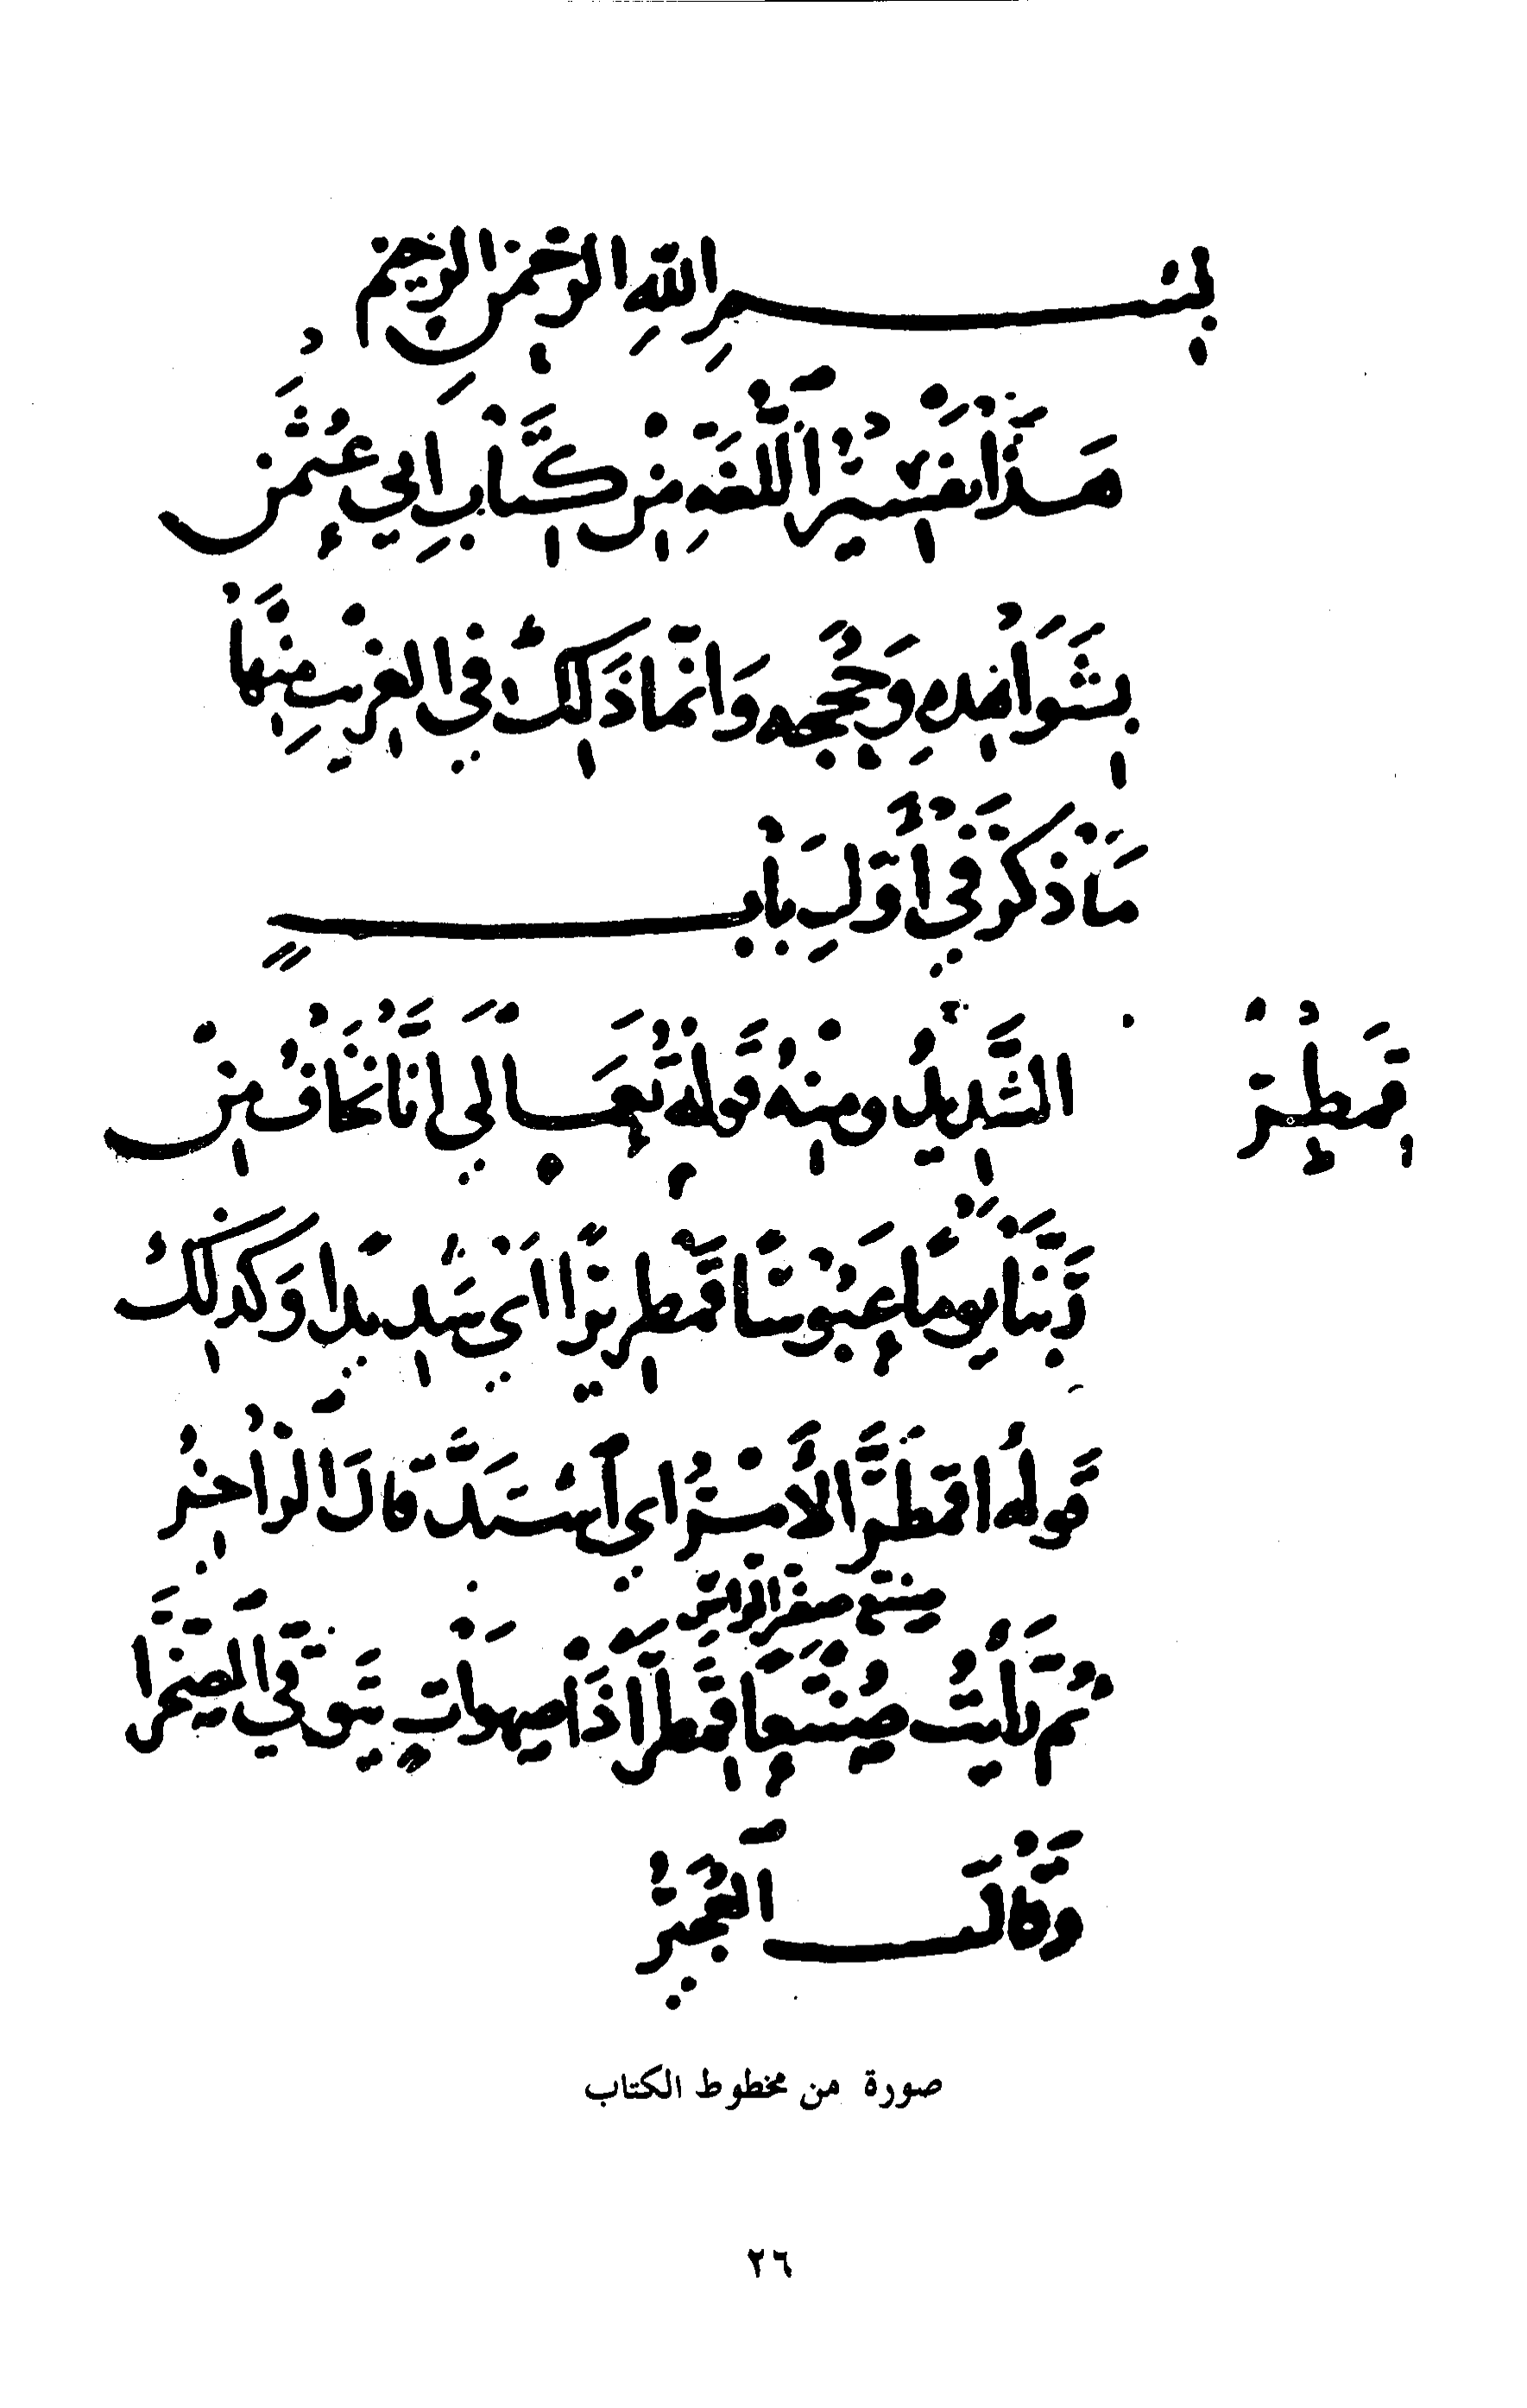 بِسْمِ اللهِ الرَّحْمنِ الرَّحِيمِ
هَذَا تَفْسِيرُ اللُّغَةِ مِنْ كِتَابِ أَبِي عُثْمَنَ
بِشَوَاهِدِهِ وَحُجَجِهِ وَإِنَّمَا ذَلِكَ فِي الْغَرِيبِ مِنْهَا
مَا ذَكَرَ فِي أَوَّلِ بَابٍ
قِمَطْرٌ الشَّدِيدُ وَمِنْهُ قَوْلُهُ تَعَالَى إِنَّا نَخَافُ مِنْ
رَبِّنَا يَوْمًا عَبُوسًا قَمْطَرِيرًا أَيْ شَدِيدًا وَكَذَلِكَ
قَوْلُهُ اقْمَطَرَّ الأَمْرُ أَي اشْتَدَّ قَالَ الرَّاجِزُ
صنتع صغير الراس
ثُمَّ رَأَيْتُ صُنْتُعًا قِمَطْرَا ذَا صَهَوَاتٍ يَتَوَقَّى الصَّخْرَا
وَقَالَ الْعُجَيْرُ
صورة من مخطوط الكتاب
٢٦